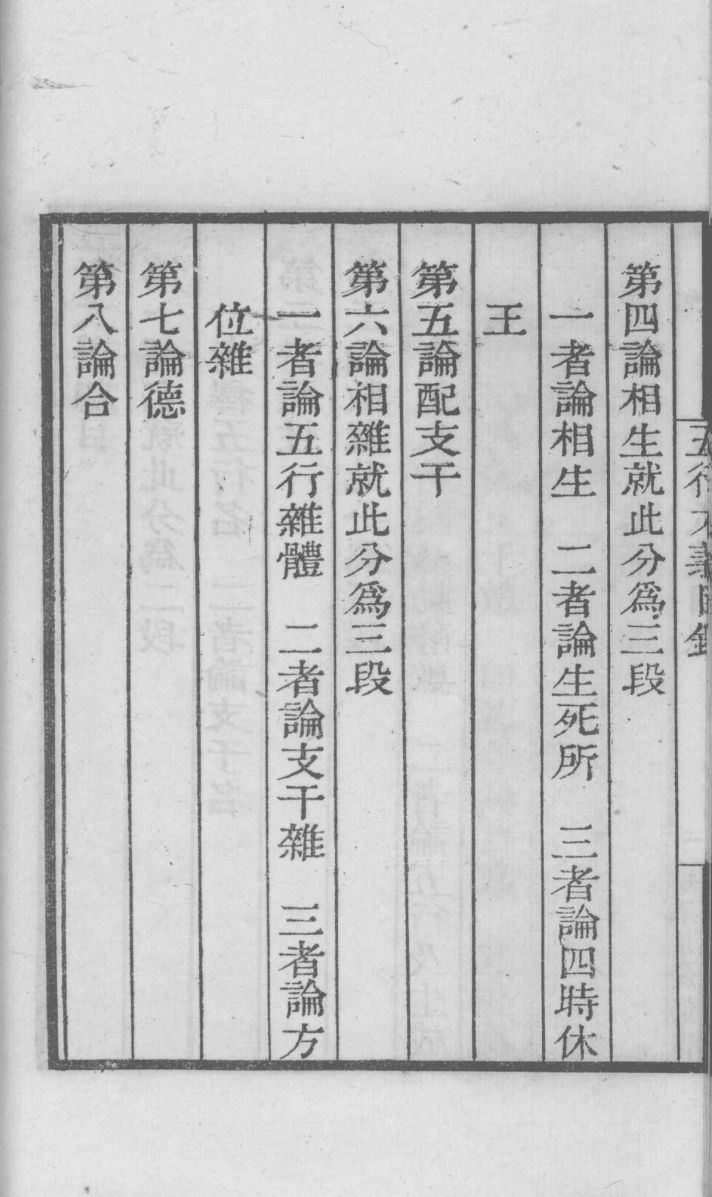 五行大義目錄
第四論相生就此分爲三段
一者論相生　二者論生死所　三者論四時休
王
第五論配支干
第六論相雜就此分爲三段
一者論五行雜體　二者論支干雜　三者論方
位雜
第七論德
第八論合